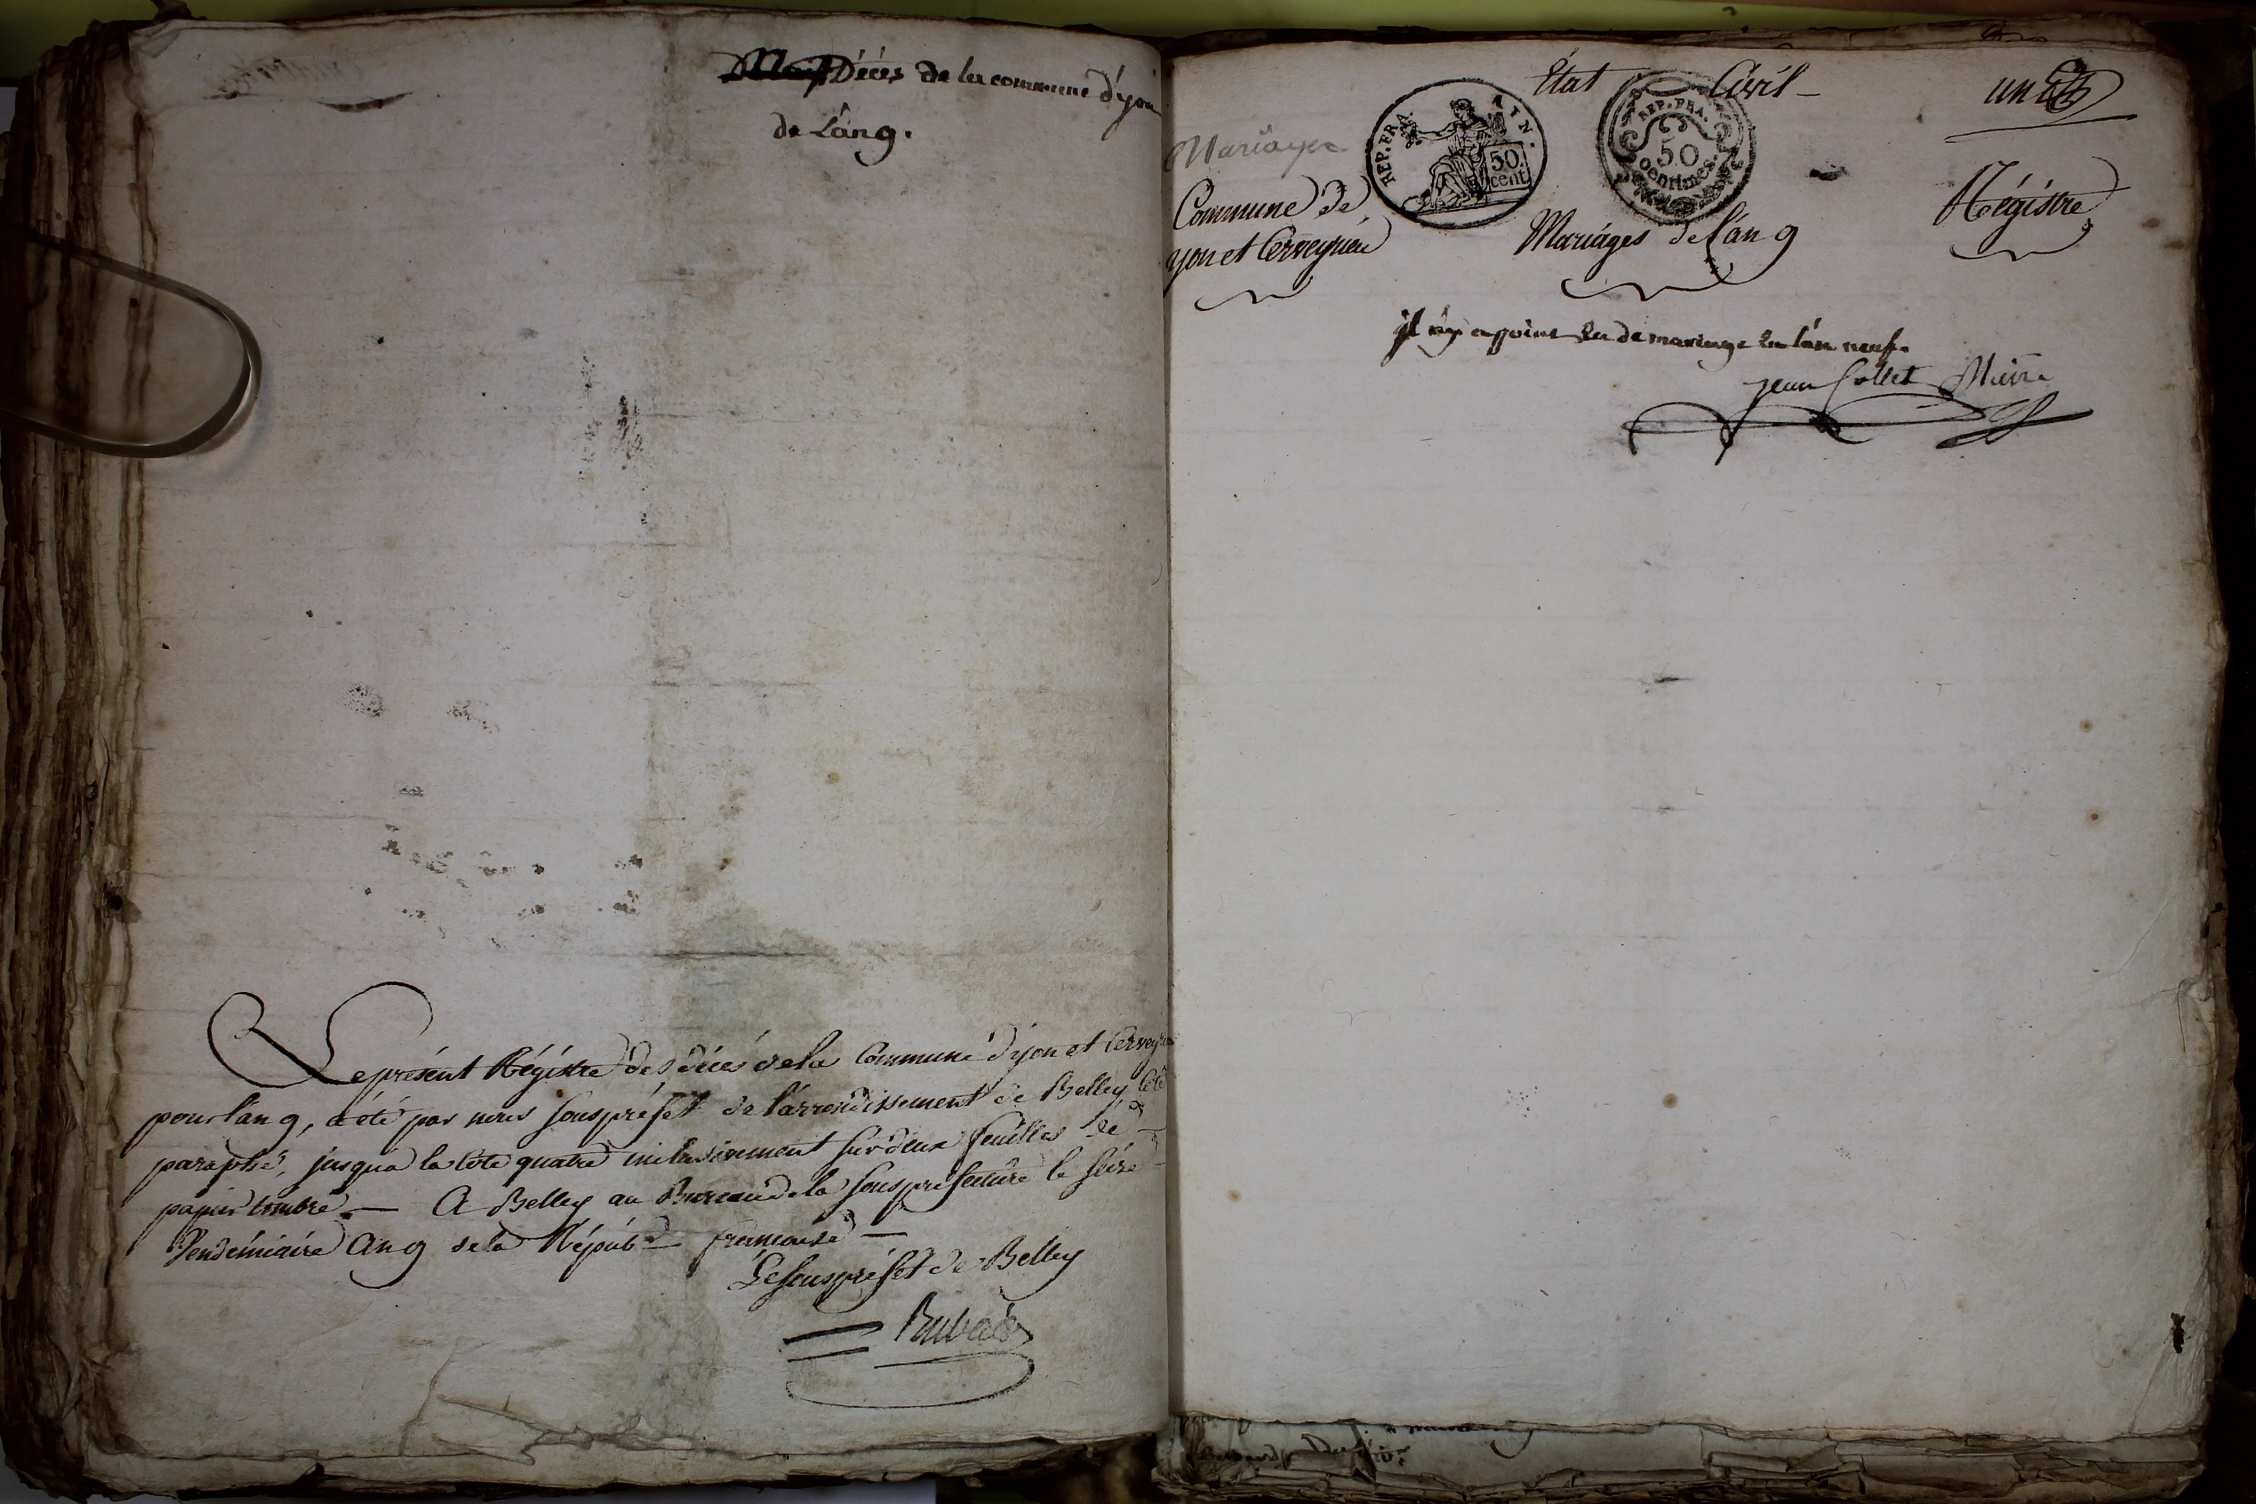 Décès de la commune d'yon
de Lan 9.
Le présent Régistre des décés de la Commune d'yon et Cerveyrieu
pour l'an 9, a été par nous souspréfet de l'arrondissement de Belley Coté
paraphé, jusqu'a la Cote quatre inclusivement sur deux feuilles de
papier timbré — A Belley au Bureau de la souspréfecture le seize
Vendémiaire an 9 de la Répub. française —
Le souspréfet de Belley
Etat Civil — un
REP. FRA. AIN.
50 cent.
REP. FRA.
50 centimes.
Mariages
Commune de
yon et Cerveyrieu
Mariages de l'an 9
Régistre
il n'y a point eu de mariage en l'an neuf.
jean Collet Maire